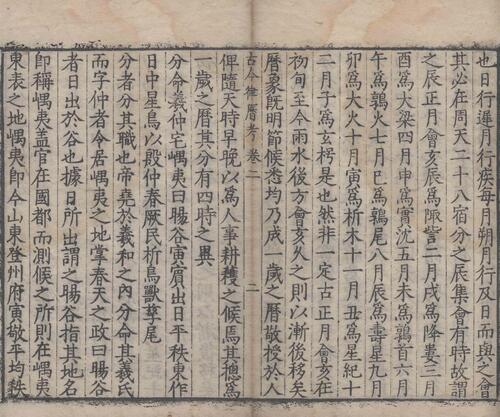 也日行遲月行疾每月朔月行及日而與之會
其必在周天二十八宿分之辰集會有時故謂
之辰正月會亥辰爲陬訾二月戌爲降婁三月
酉爲大梁四月申爲實沈五月未爲鶉首六月
午爲鶉火七月巳爲鶉尾八月辰爲壽星九月
卯爲大火十月寅爲析木十一月丑爲星紀十
二月子爲玄枵是也然非一定古正月會亥在
初旬至今雨水後方會亥久之則以漸後移矣
曆象旣明節候悉均乃成歲之曆敬授於人
古今律曆考卷二 二
俾隨天時早晚以爲人事耕穫之候焉其總爲
一歲之曆其分有四時之異
分命羲仲宅嵎夷曰暘谷寅賓出日平秩東作
日中星鳥以殷仲春厥民析鳥獸孳尾
分者分其職也帝堯於羲和之內分命其羲氏
而字仲者令居嵎夷之地掌春天之政曰暘谷
者日出於谷也據日所出謂之暘谷指其地名
即稱嵎夷盖官在國都而測候之所則在嵎夷
東表之地嵎夷即今山東登州府寅敬平均秩